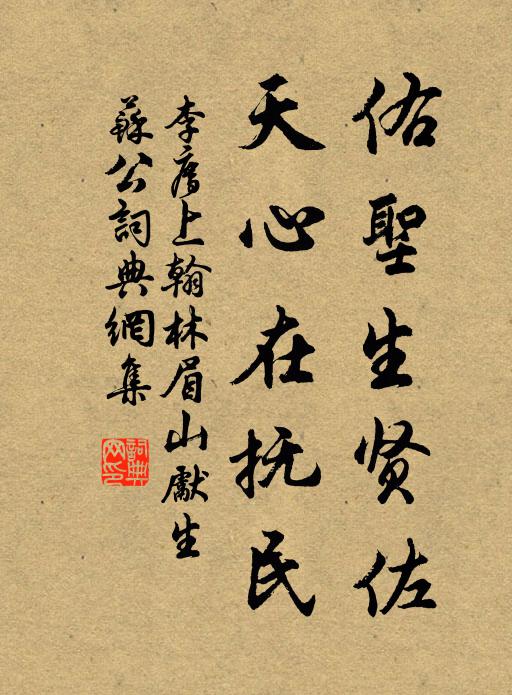 佑聖生贤佐
天心在抚民
李廌上翰林眉山獻生
蘇公詞典網集
詞典
网印